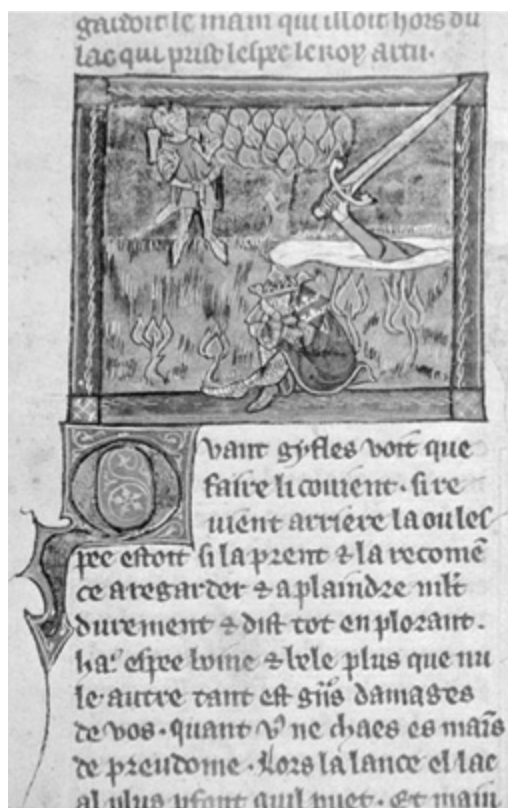 gardoit le main qui issoit hors du
lac qui prist lespee le roy artu.
Quant gyfles voit que
faire li covient. si re
vient arriere la ou les
pee estoit si la prent ⁊ la recomē
ce a regarder ⁊ a plaindre mlt
durement ⁊ dist tot en plorant.
ha. espee boine ⁊ bele plus que nu
le autre tant est grās damages
de vos. quant ne chaes es mains
de preudome. Lors la lance el lac
al plus pfont quil puet. Et main